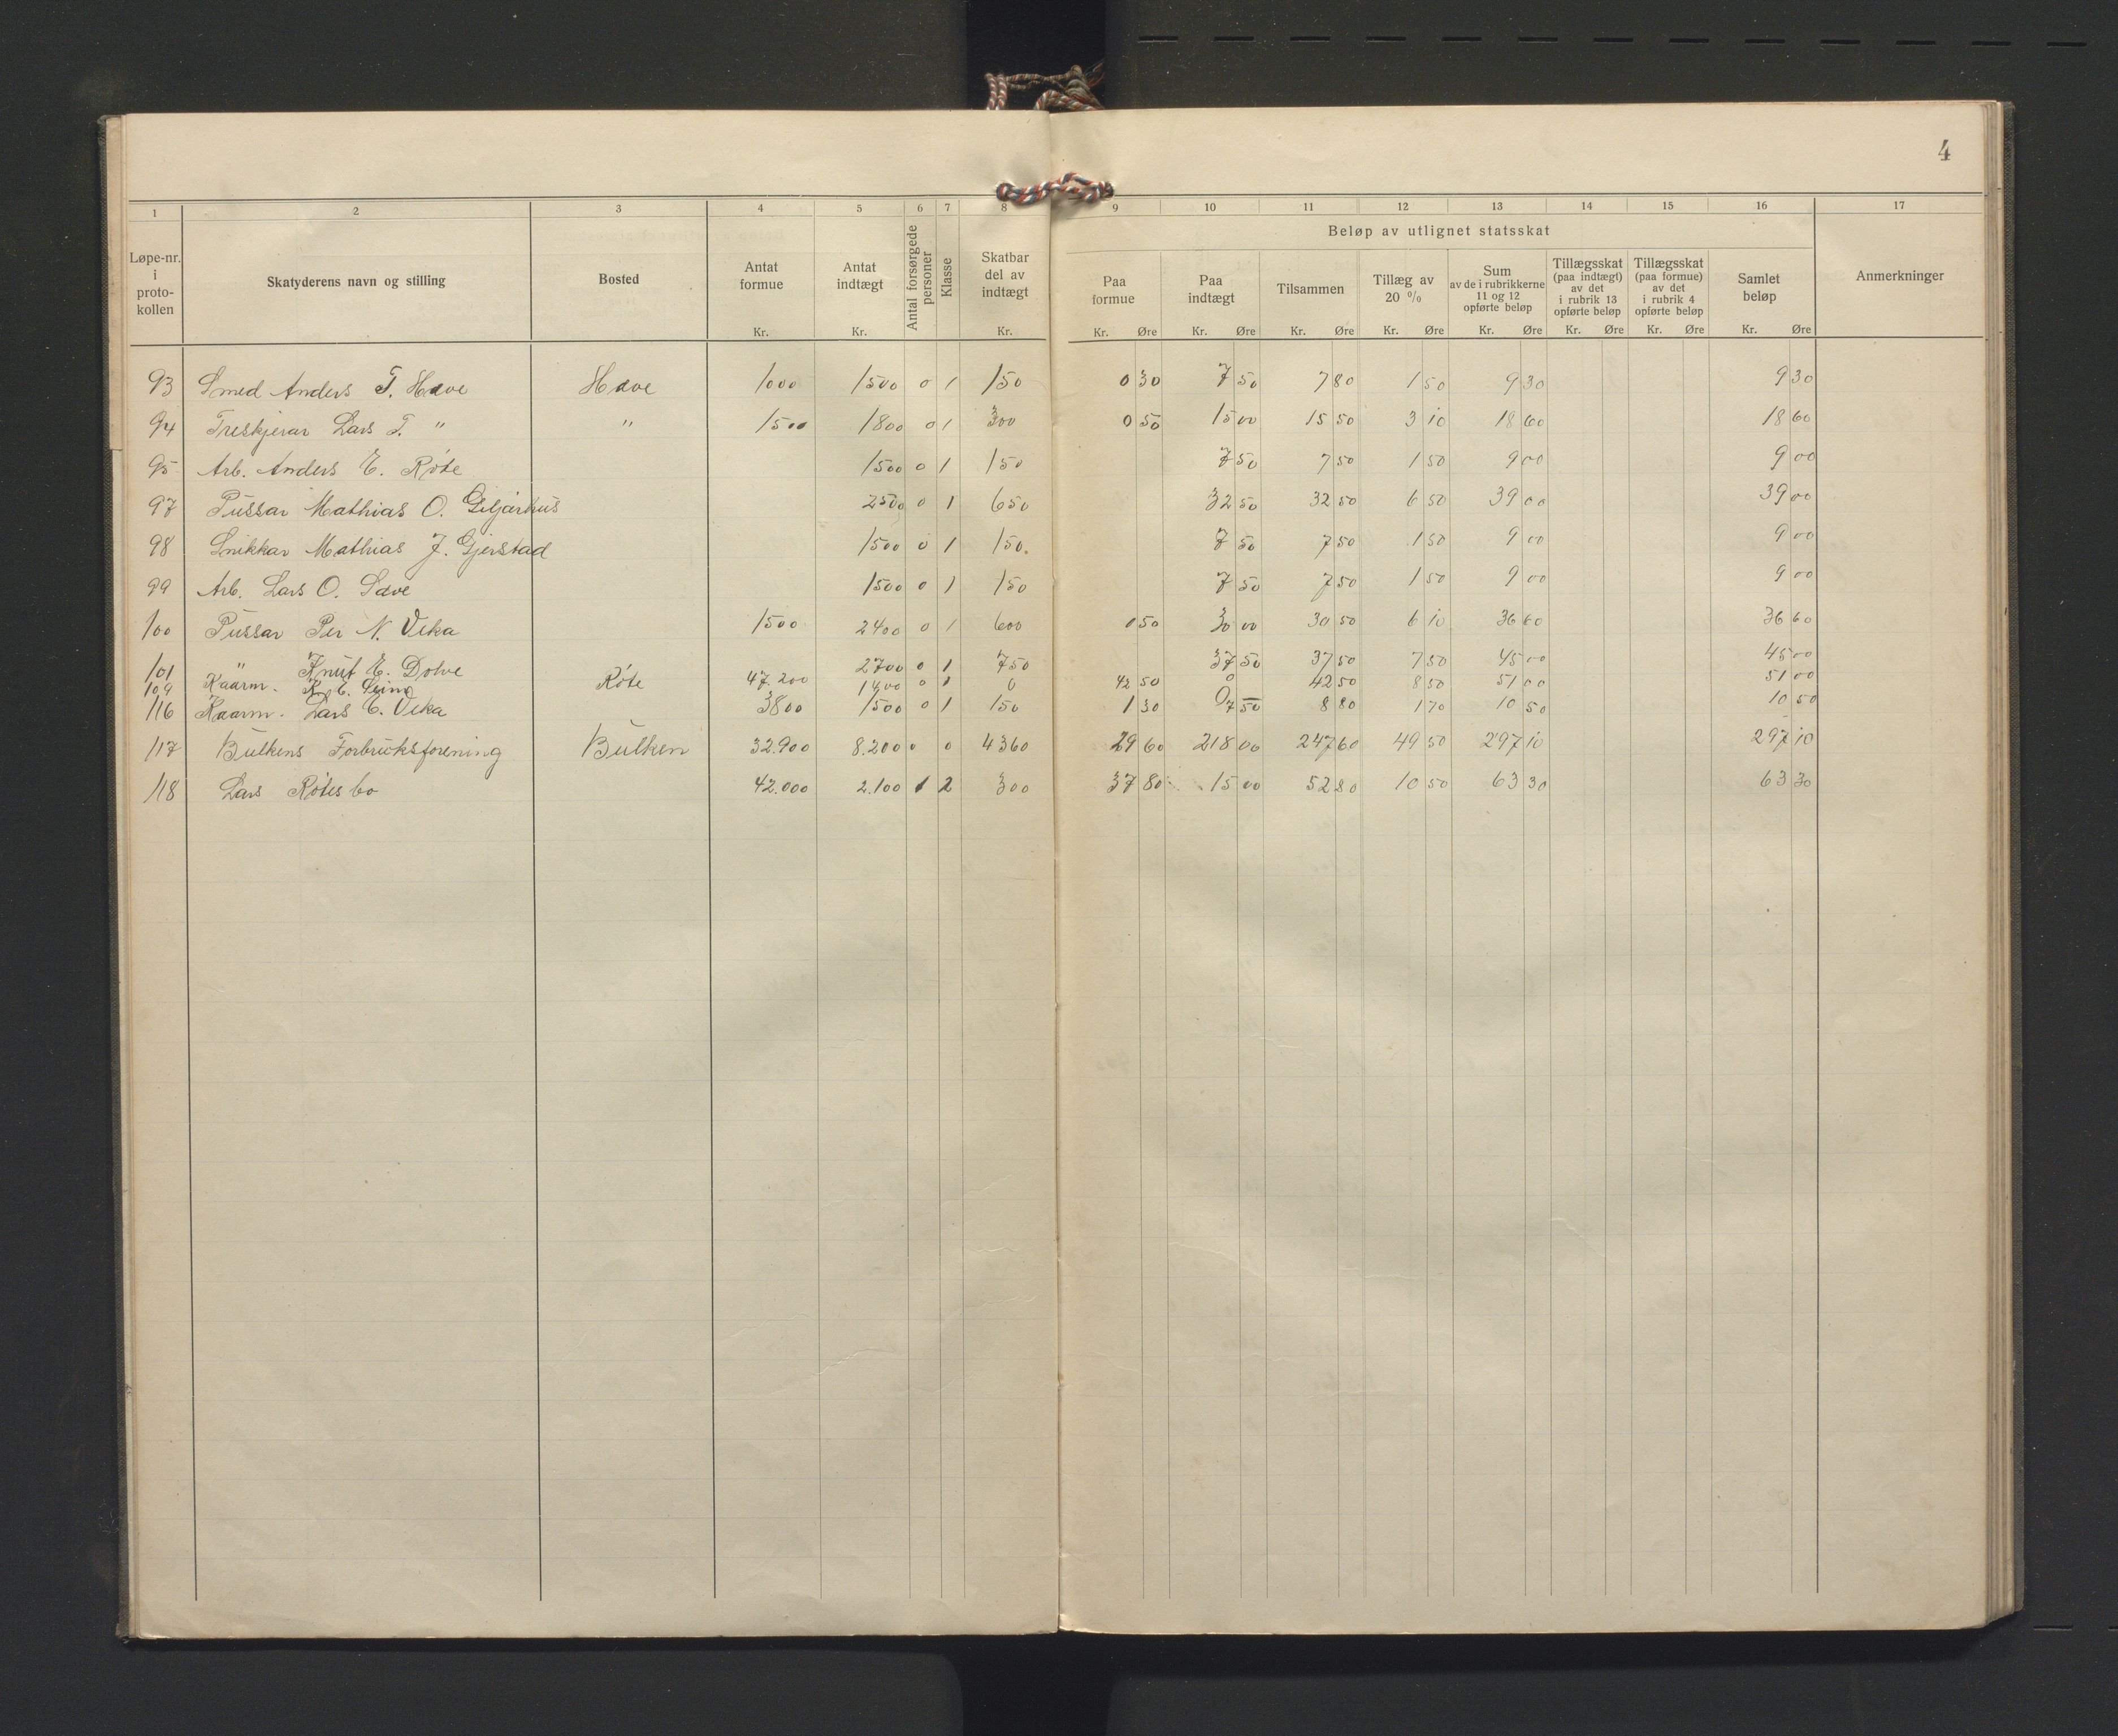 4
1 2 3 4 5 6 7 8 9 10 11 12 13 14 15 16 17
Beløp av utlignet statsskat
Løpe-nr. i proto- kollen
Skatyderens navn og stilling
Bosted
Antat formue Kr.
Antat indtægt Kr.
Antal forsørgede personer
Klasse
Skatbar del av indtægt Kr.
Paa formue Kr. Øre
Paa indtægt Kr. Øre
Tilsammen Kr. Øre
Tillæg av 20 % Kr. Øre
Sum av de i rubrikkerne 11 og 12 opførte beløp Kr. Øre
Tillægsskat (paa indtægt) av det i rubrik 13 opførte beløp Kr. Øre
Tillægsskat (paa formue) av det i rubrik 4 opførte beløp Kr. Øre
Samlet beløp Kr. Øre
Anmerkninger
93 Smed Anders T. Have Have 1000 1500 0 1 150 0 30 7 50 7 80 1 50 9 30 9 30
94 Treskjerar Lars T. " " 1500 1800 0 1 300 0 50 15 00 15 50 3 10 18 60 18 60
95 Arb. Anders E. Røte 1500 0 1 150 7 50 7 50 1 50 9 00 9 00
97 Pussar Mathias O. 2500 0 1 650 32 50 32 50 6 50 39 00 39 00
98 Snikkar Mathias J. Gjerstad 1500 0 1 150. 7 50 7 50 1 50 9 00 9 00
99 Arb. Lars O. Sæve 1500 0 1 150 7 50 7 50 1 50 9 00 9 00
100 Pussar Per N. Veka 1500 2400 0 1 600 0 50 30 00 30 50 6 10 36 60 36 60
101 " Knut E. Dolve 2700 0 1 750 37 50 37 50 7 50 45 00 45 00
109 Kaarm. Røte 47.200 1400 0 1 0 42 50 0 42 50 8 50 51 00 51 00
116 Kaarm. Lars E. Veka 3800 1500 0 1 150 1 30 7 50 8 80 1 70 10 50 10 50
117 Bulkens Forbruksforening Bulken 32.900 8.200 0 0 4360 29 60 218 00 247 60 49 50 297 10 297 10
118 Lars Røtesbo 42.000 2.100 1 2 300 37 80 15 00 52 80 10 50 63 30 63 30